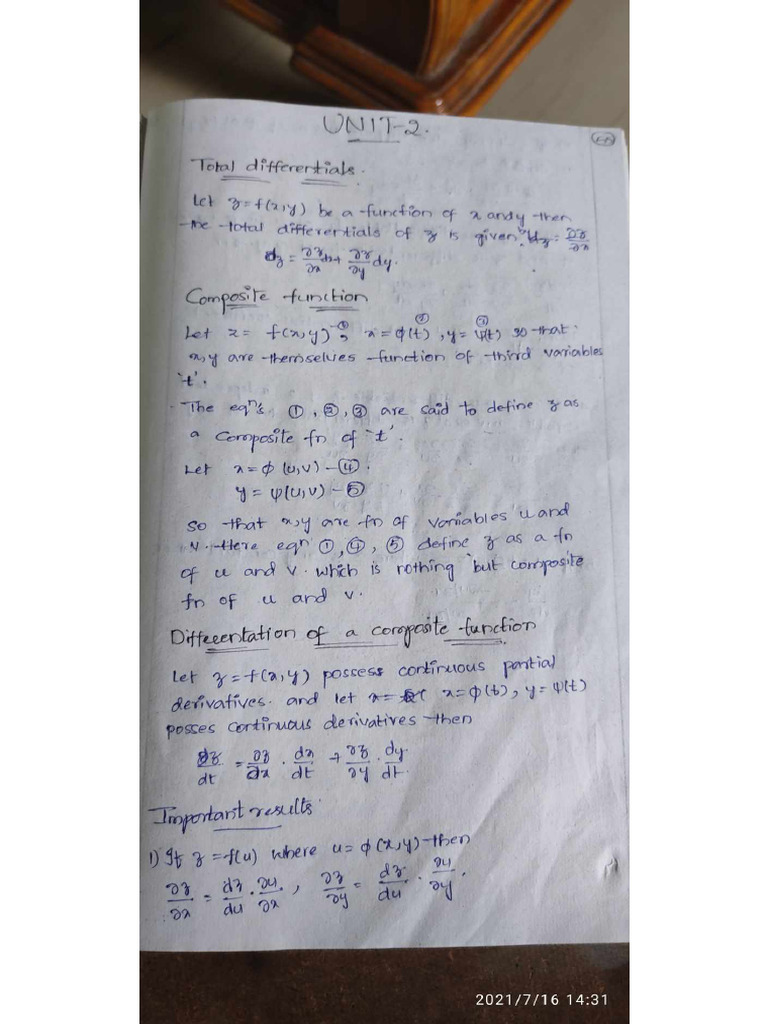 UNIT-2.
Total differentials.
Let z=f(x,y) be a function of x and y then
the total differentials of z is given by dz = ∂z/∂x
dz = ∂z/∂x dx + ∂z/∂y dy.
Composite function
Let z = f(x,y) -①, x=φ(t) ②, y=ψ(t) ③ so that
x,y are themselves function of third variables
't'.
The eqn's ①, ②, ③ are said to define z as
a composite fn of 't'.
Let x=φ(u,v) -④.
y = ψ(u,v) -⑤
so that x,y are fn of variables u and
v. Here eqn ①, ④, ⑤ define z as a fn
of u and v. which is nothing but composite
fn of u and v.
Differentation of a composite function
Let z=f(x,y) possess continuous partial
derivatives. and let x= x=φ(t), y=ψ(t)
posses continuous derivatives then
dz/dt = ∂z/∂x . dx/dt + ∂z/∂y . dy/dt.
Important results
1) If z=f(u) where u= φ(x,y) then
∂z/∂x = dz/du . ∂u/∂x , ∂z/∂y = dz/du . ∂u/∂y .
2021/7/16 14:31